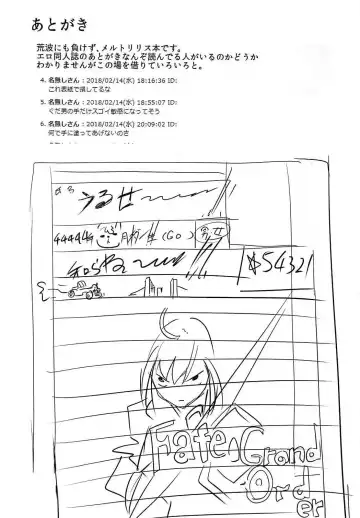 あとがき
荒波にも負けず、メルトリリス本です。
エロ同人誌のあとがきなんぞ読んでる人がいるのかどうか
わかりませんがこの場を借りていろいろと。
4. 名無しさん：2018/02/14(水) 18:16:36 ID:
これ表紙で損してるな
5. 名無しさん：2018/02/14(水) 18:55:07 ID:
ぐだ男の手だけスゴイ敏感になってそう
6. 名無しさん：2018/02/14(水) 20:09:02 ID:
何で手に塗ってあげないのさ
氏名
うるせ〜〜
44444年
月 日生(60)
男 女
知らね〜〜
54321
Fate Grand
Order